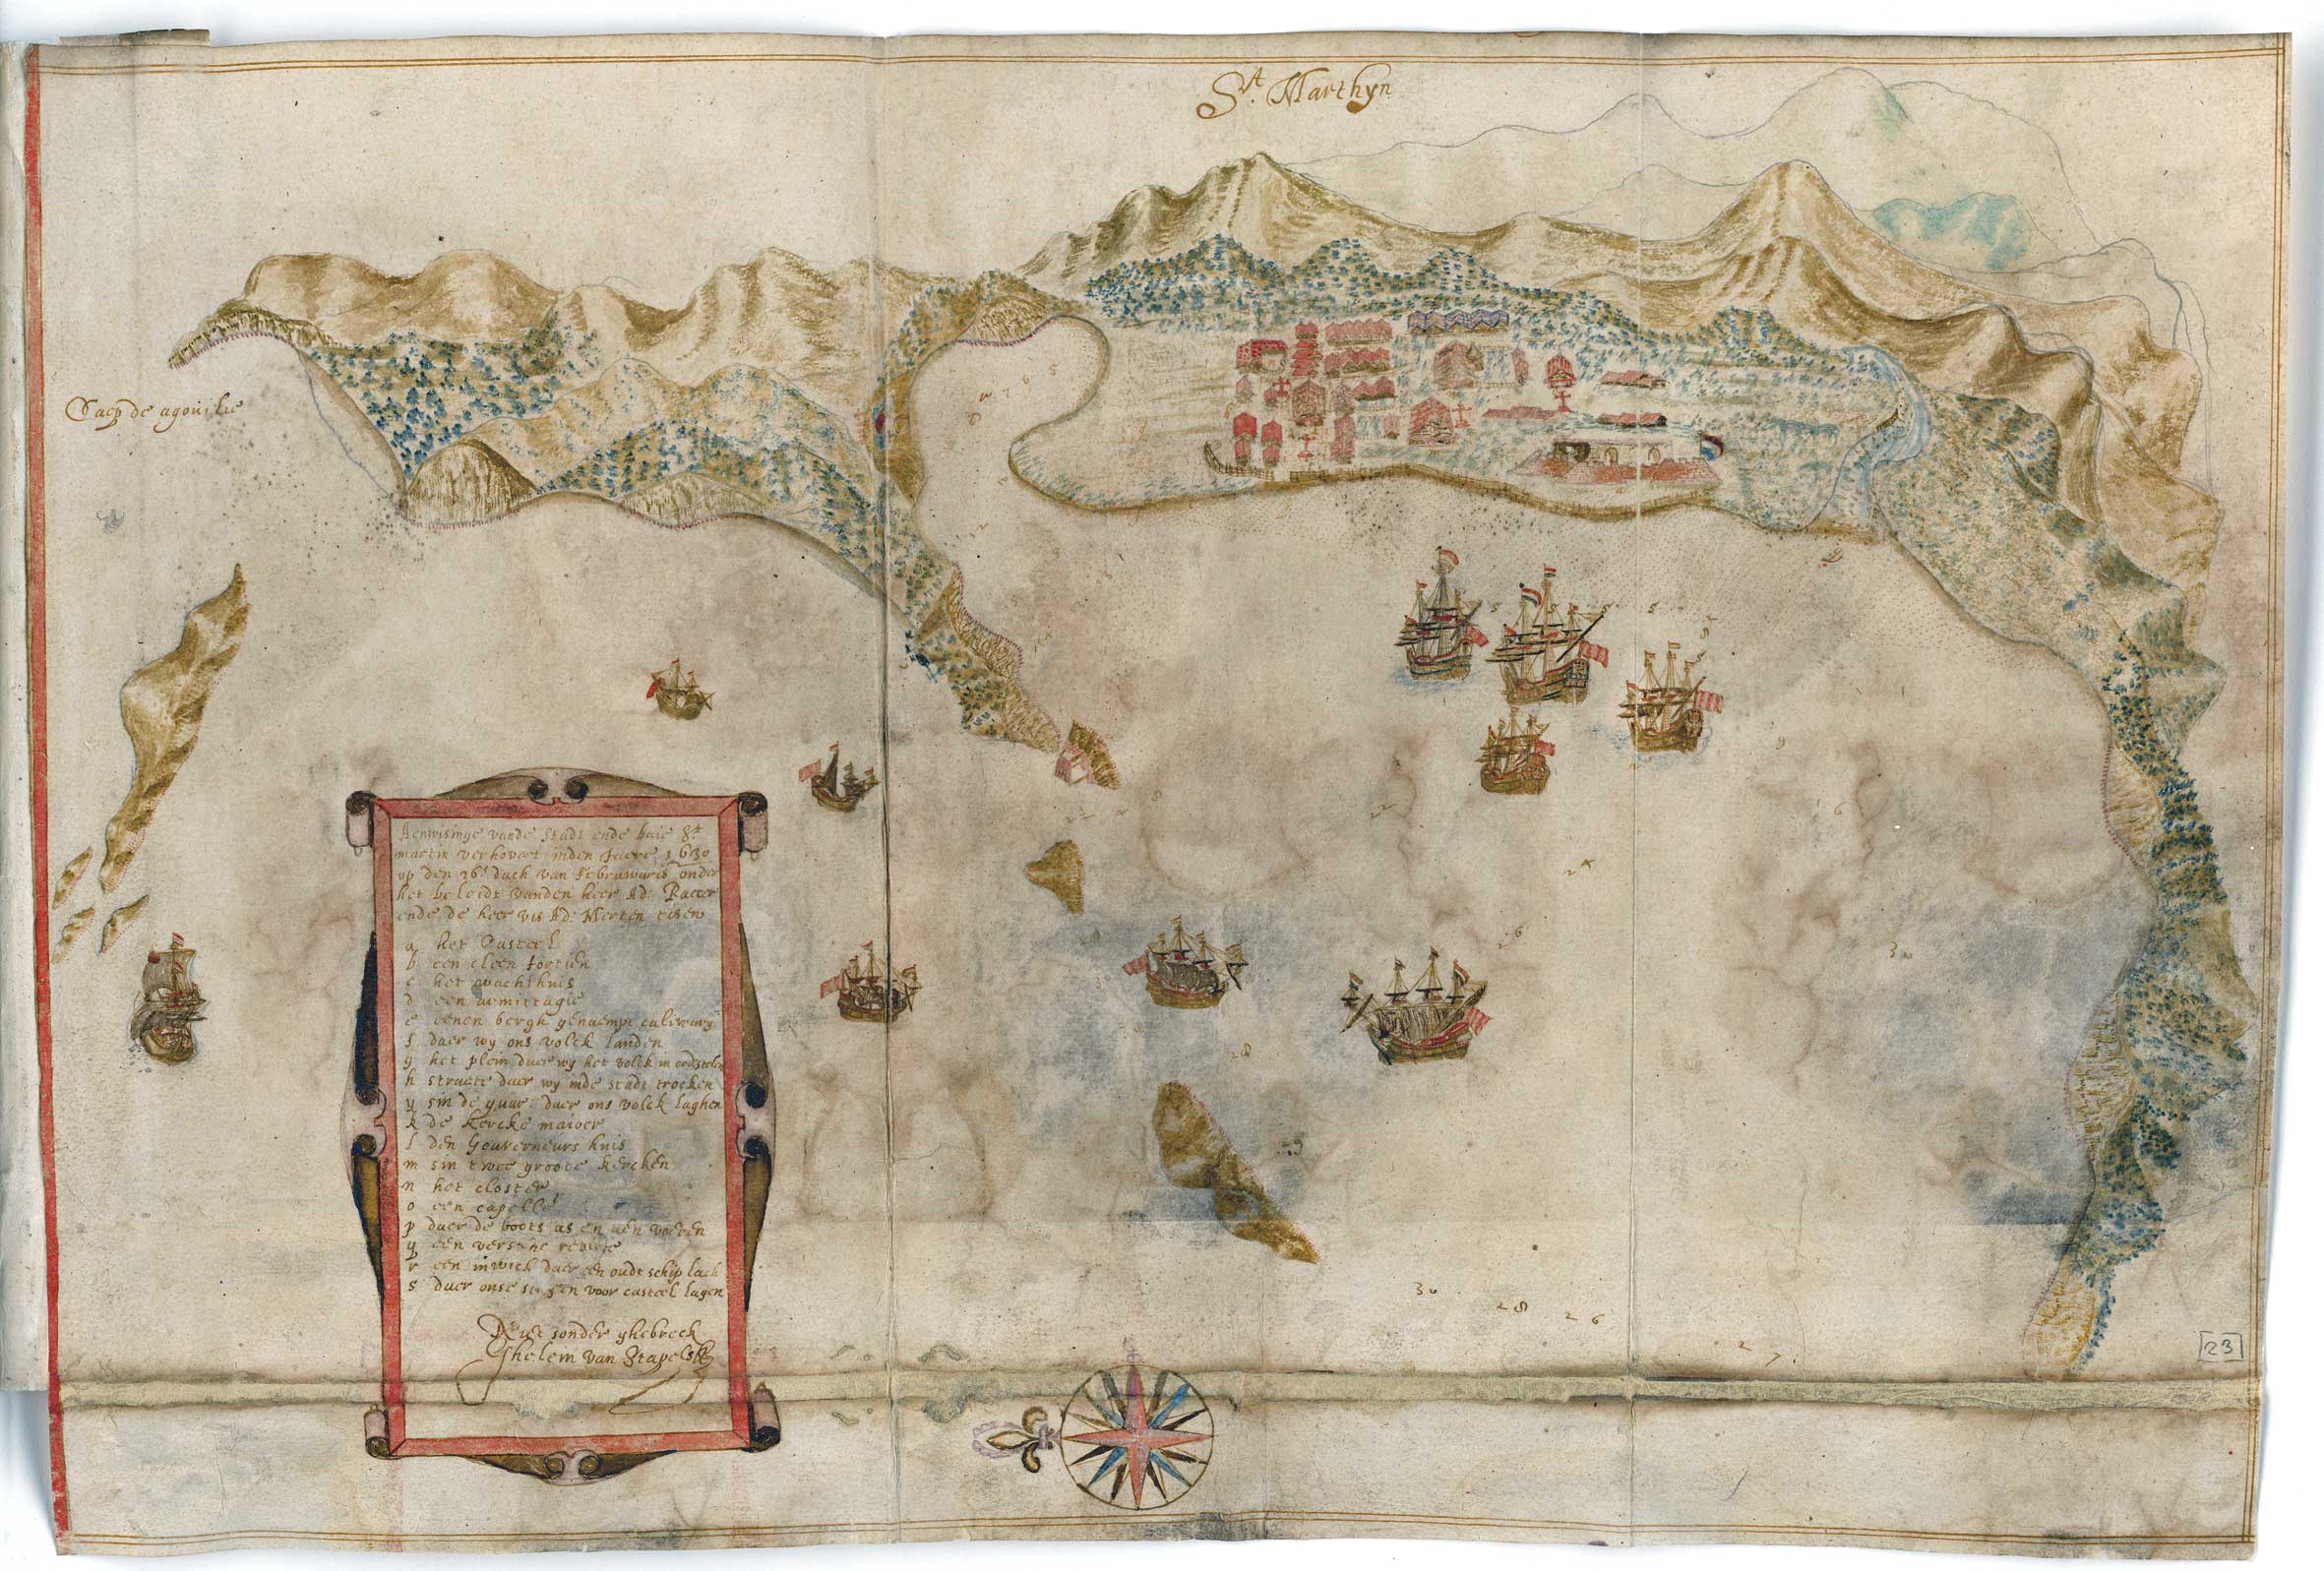 St. Marthyn
Caep de agouilie
Aenwisinge vande stadt ende baie St
martin verhovert inden Jaere 1630
op den 26 dach van februwaris onder
het beleidt vanden heer Ad: Pater
ende de heer vis Ad: Merten tisen
a het Casteel
b een cleen fortien
c het wachthuis
d een armitagie
e eenen bergh genaempt
f daer wy ons volck landen
g het plein daer wy het volck in
h straete daer wy inde stadt trocken
y sin de quar: daer ons volck laghen
k de kercke maioer
l den Gouverneurs huis
m sin twee groote kercken
n het closter
o een capelle
p daer de boots aen voeren
q een versche
r een inwick daer en oudt schip lach
s daer onse voor casteel lagen
Niet sonder ghebreck
Ghelein van Stapels
8 7 6 5
5 5 5
9
22
6
24
26
30
28
29
30 28 26
27
[23]